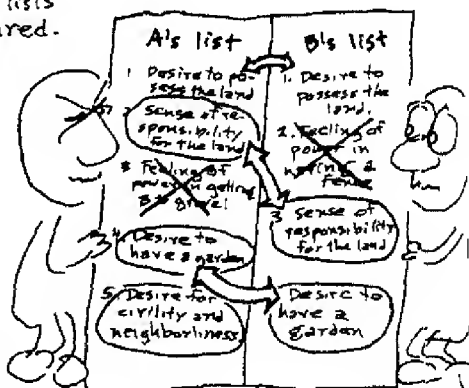 lists
ared.
A's list
1. Desire to po-
ssess the land
2. sense of re-
sponsibility
for the land
3. Feeling of
power in
4. Desire to
have a garden
5. Desire for
civility and
neighborliness
B's list
1. Desire to
possess the
land.
2. Feeling of
power in
having a
fence
3 sense of
responsibility
for the land
Desire to
have a
garden